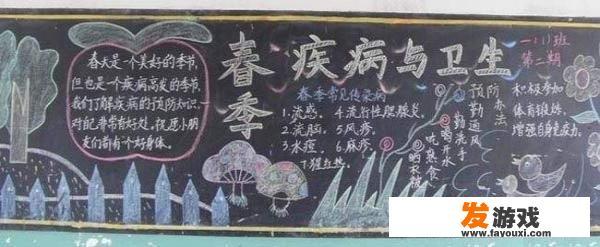 春天是一个美好的季节,
但也是一个疾病高发的季节,
我们了解疾病的预防知识,
对自己非常有好处。祝愿小朋
友们都有个好身体。
春季
疾病与卫生
一(1)班
第二期
春季常见传染病
1.流感. 4.流行性腮腺炎
2.流脑. 5.风疹.
3.水痘. 6.麻疹.
7.猩红热.
预防办法
勤通风
勤洗手
喝开水
吃熟食
晒衣被
积极参加
体育锻炼,
增强自身免疫力。
发游戏
www.fayouxi.com